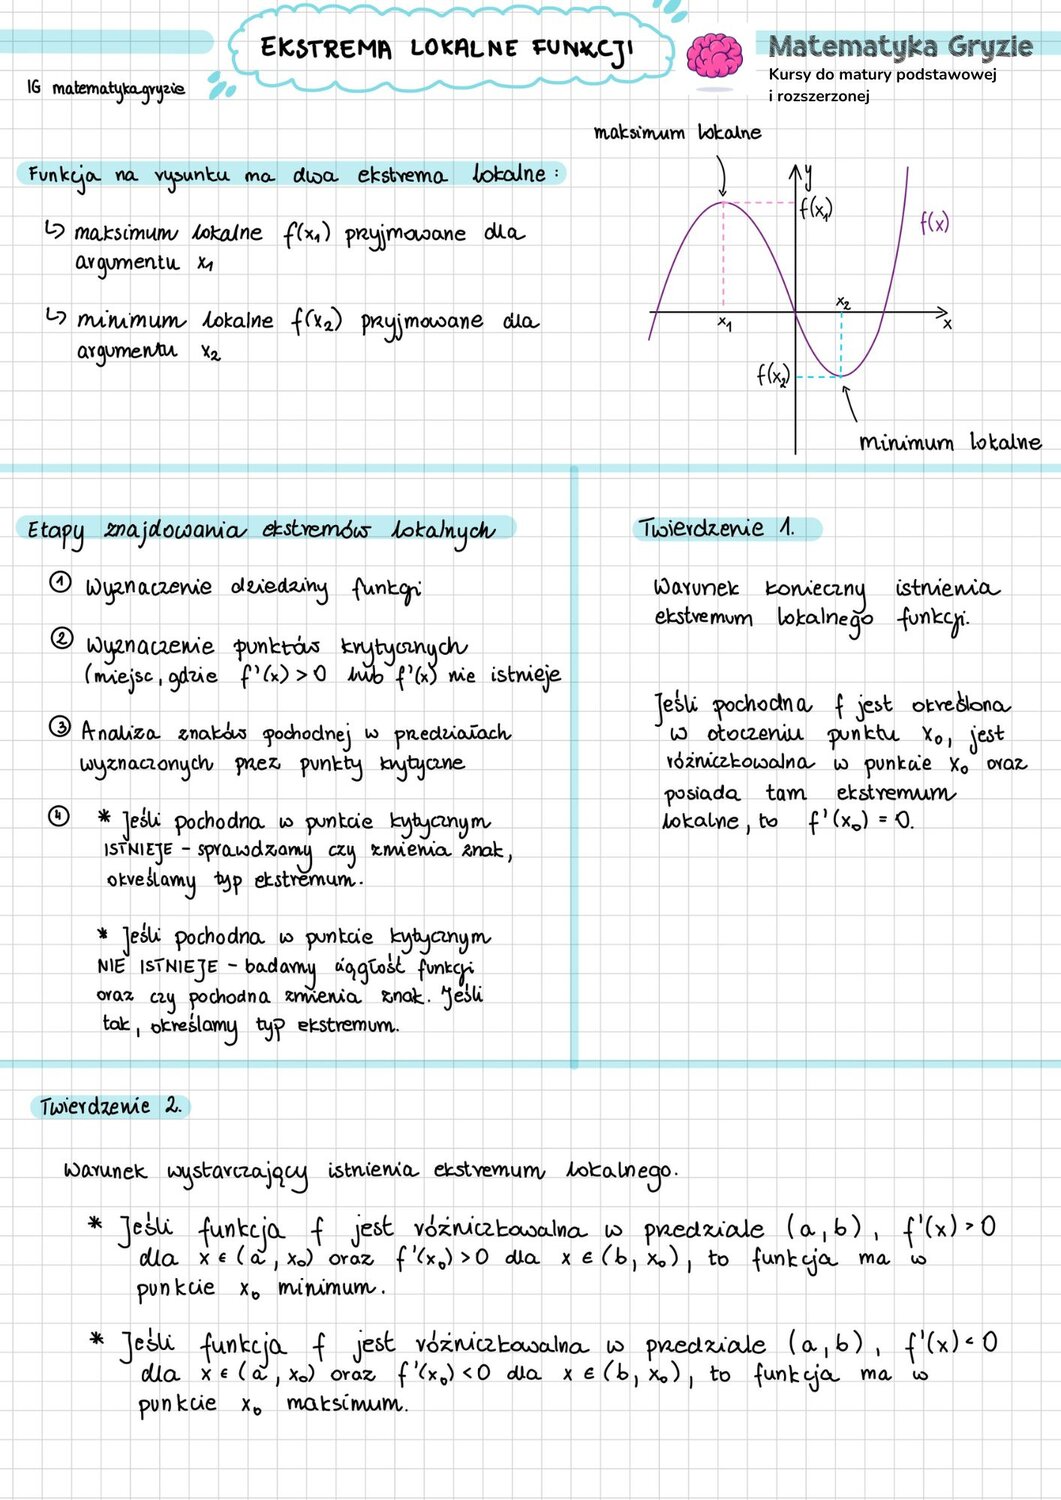 EKSTREMA LOKALNE FUNKCJI
Matematyka Gryzie
Kursy do matury podstawowej
i rozszerzonej
IG matematykagryzie
Funkcja na rysunku ma dwa ekstrema lokalne :
↳ maksimum lokalne f(x₁) przyjmowane dla
argumentu x₁
↳ minimum lokalne f(x₂) przyjmowane dla
argumentu x₂
maksimum lokalne
y
f(x₁)
f(x)
x₂
x₁
x
f(x₂)
minimum lokalne
Etapy znajdowania ekstremów lokalnych
① Wyznaczenie dziedziny funkcji
② Wyznaczenie punktów krytycznych
(miejsc, gdzie f'(x) > 0 lub f'(x) nie istnieje
③ Analiza znaków pochodnej w przedziałach
wyznaczonych przez punkty krytyczne
④ * Jeśli pochodna w punkcie kytycznym
ISTNIEJE - sprawdzamy czy zmienia znak,
określamy typ ekstremum.
* Jeśli pochodna w punkcie kytycznym
NIE ISTNIEJE - badamy ciągłość funkcji
oraz czy pochodna zmienia znak. Jeśli
tak, określamy typ ekstremum.
Twierdzenie 1.
Warunek konieczny istnienia
ekstremum lokalnego funkcji.
Jeśli pochodna f jest określona
w otoczeniu punktu x₀, jest
różniczkowalna w punkcie x₀ oraz
posiada tam ekstremum
lokalne, to f'(x₀) = 0.
Twierdzenie 2.
Warunek wystarczający istnienia ekstremum lokalnego.
* Jeśli funkcja f jest różniczkowalna w przedziale (a, b), f'(x) > 0
dla x ∈ (a, x₀) oraz f'(x₀) > 0 dla x ∈ (b, x₀), to funkcja ma w
punkcie x₀ minimum.
* Jeśli funkcja f jest różniczkowalna w przedziale (a, b), f'(x) < 0
dla x ∈ (a, x₀) oraz f'(x₀) < 0 dla x ∈ (b, x₀), to funkcja ma w
punkcie x₀ maksimum.